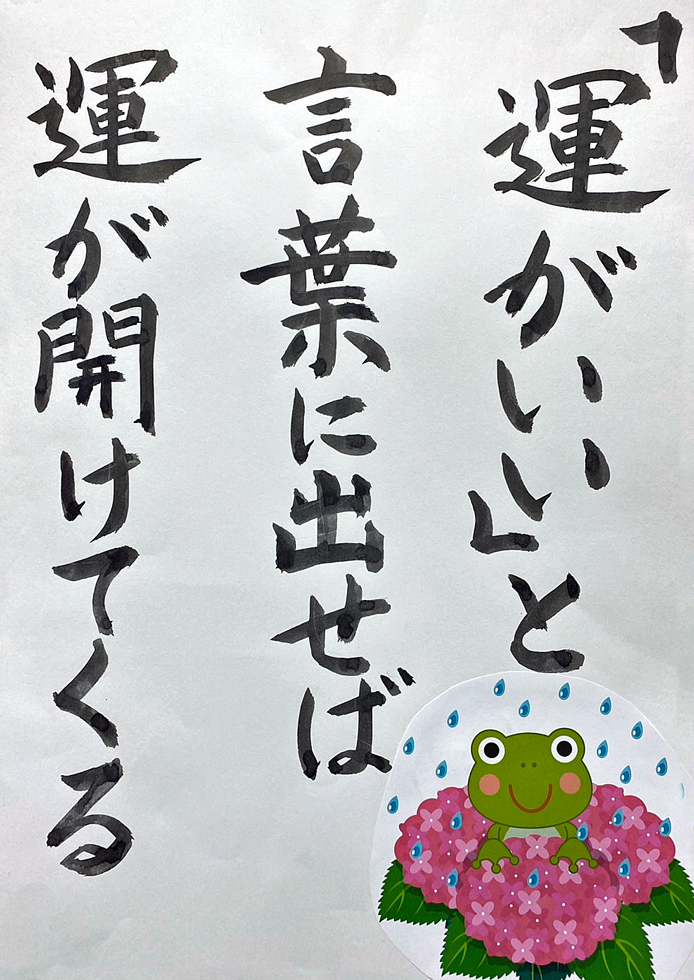 「運がいい」と
言葉に出せば
運が開けてくる